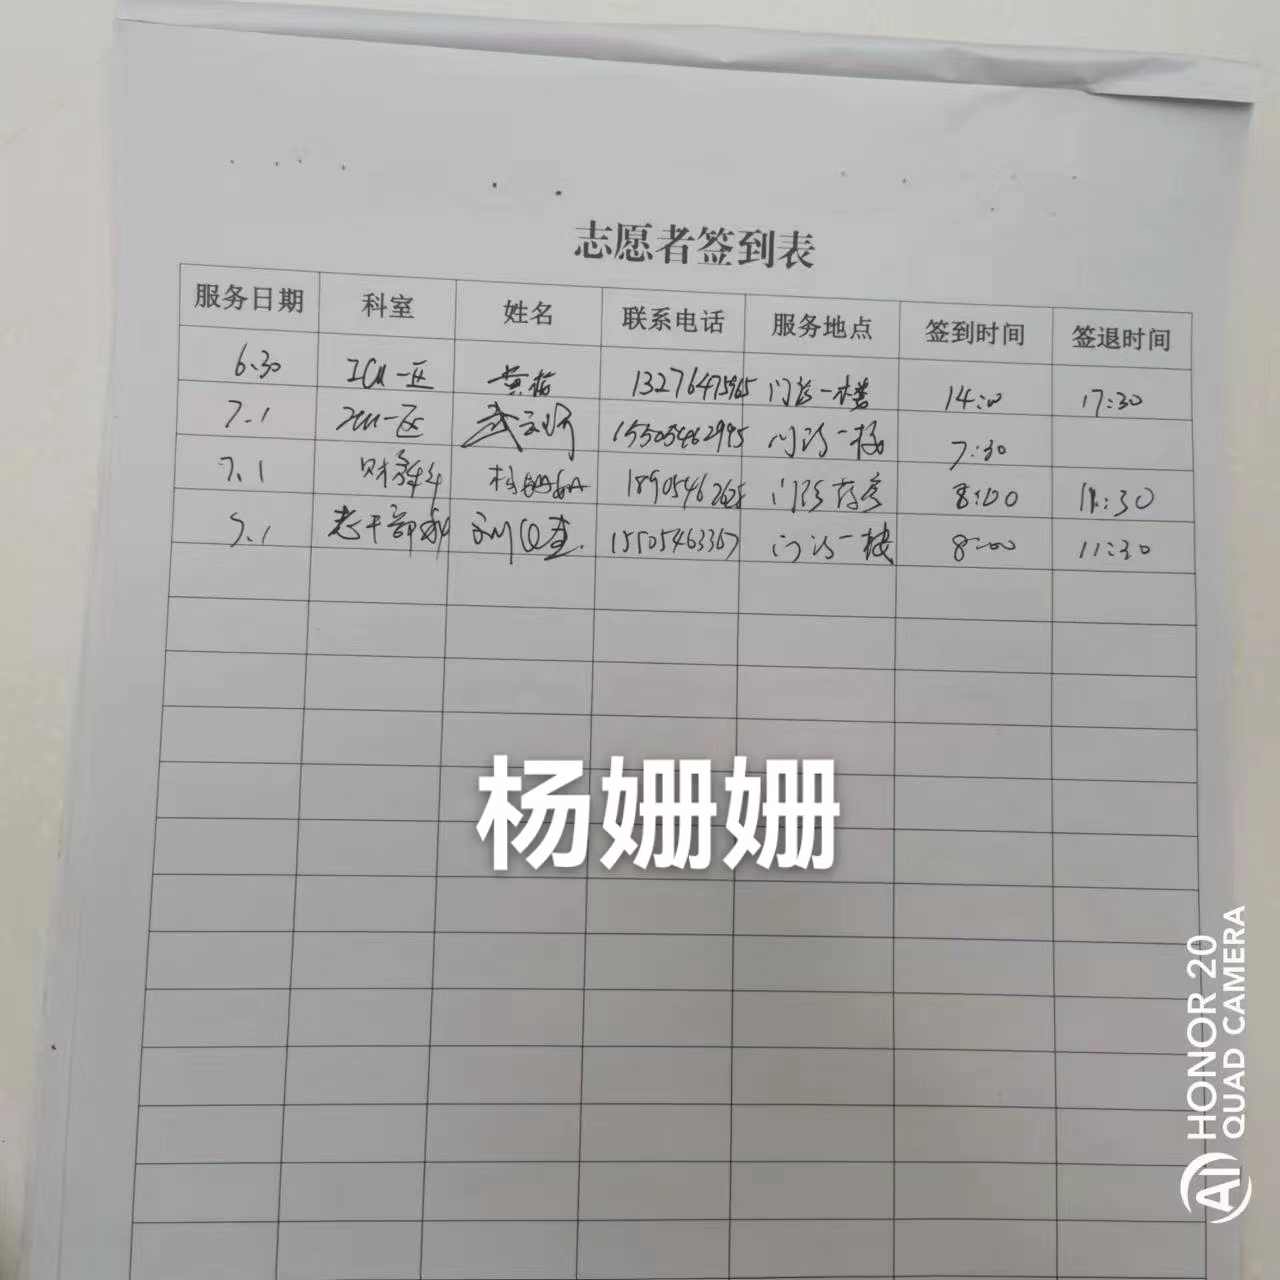 志愿者签到表
服务日期 科室 姓名 联系电话 服务地点 签到时间 签退时间
6.30 ICU一区 黄 13276475965 门诊一楼 14:00 17:30
7.1 ICU一区 武 15505462995 门诊一楼 7:30
7.1 财务科 杨姗姗 门诊 8:00 11:30
7.1 老干部科 刘 15505463367 门诊一楼 8:00 11:30
杨姗姗
HONOR 20
QUAD CAMERA
AI